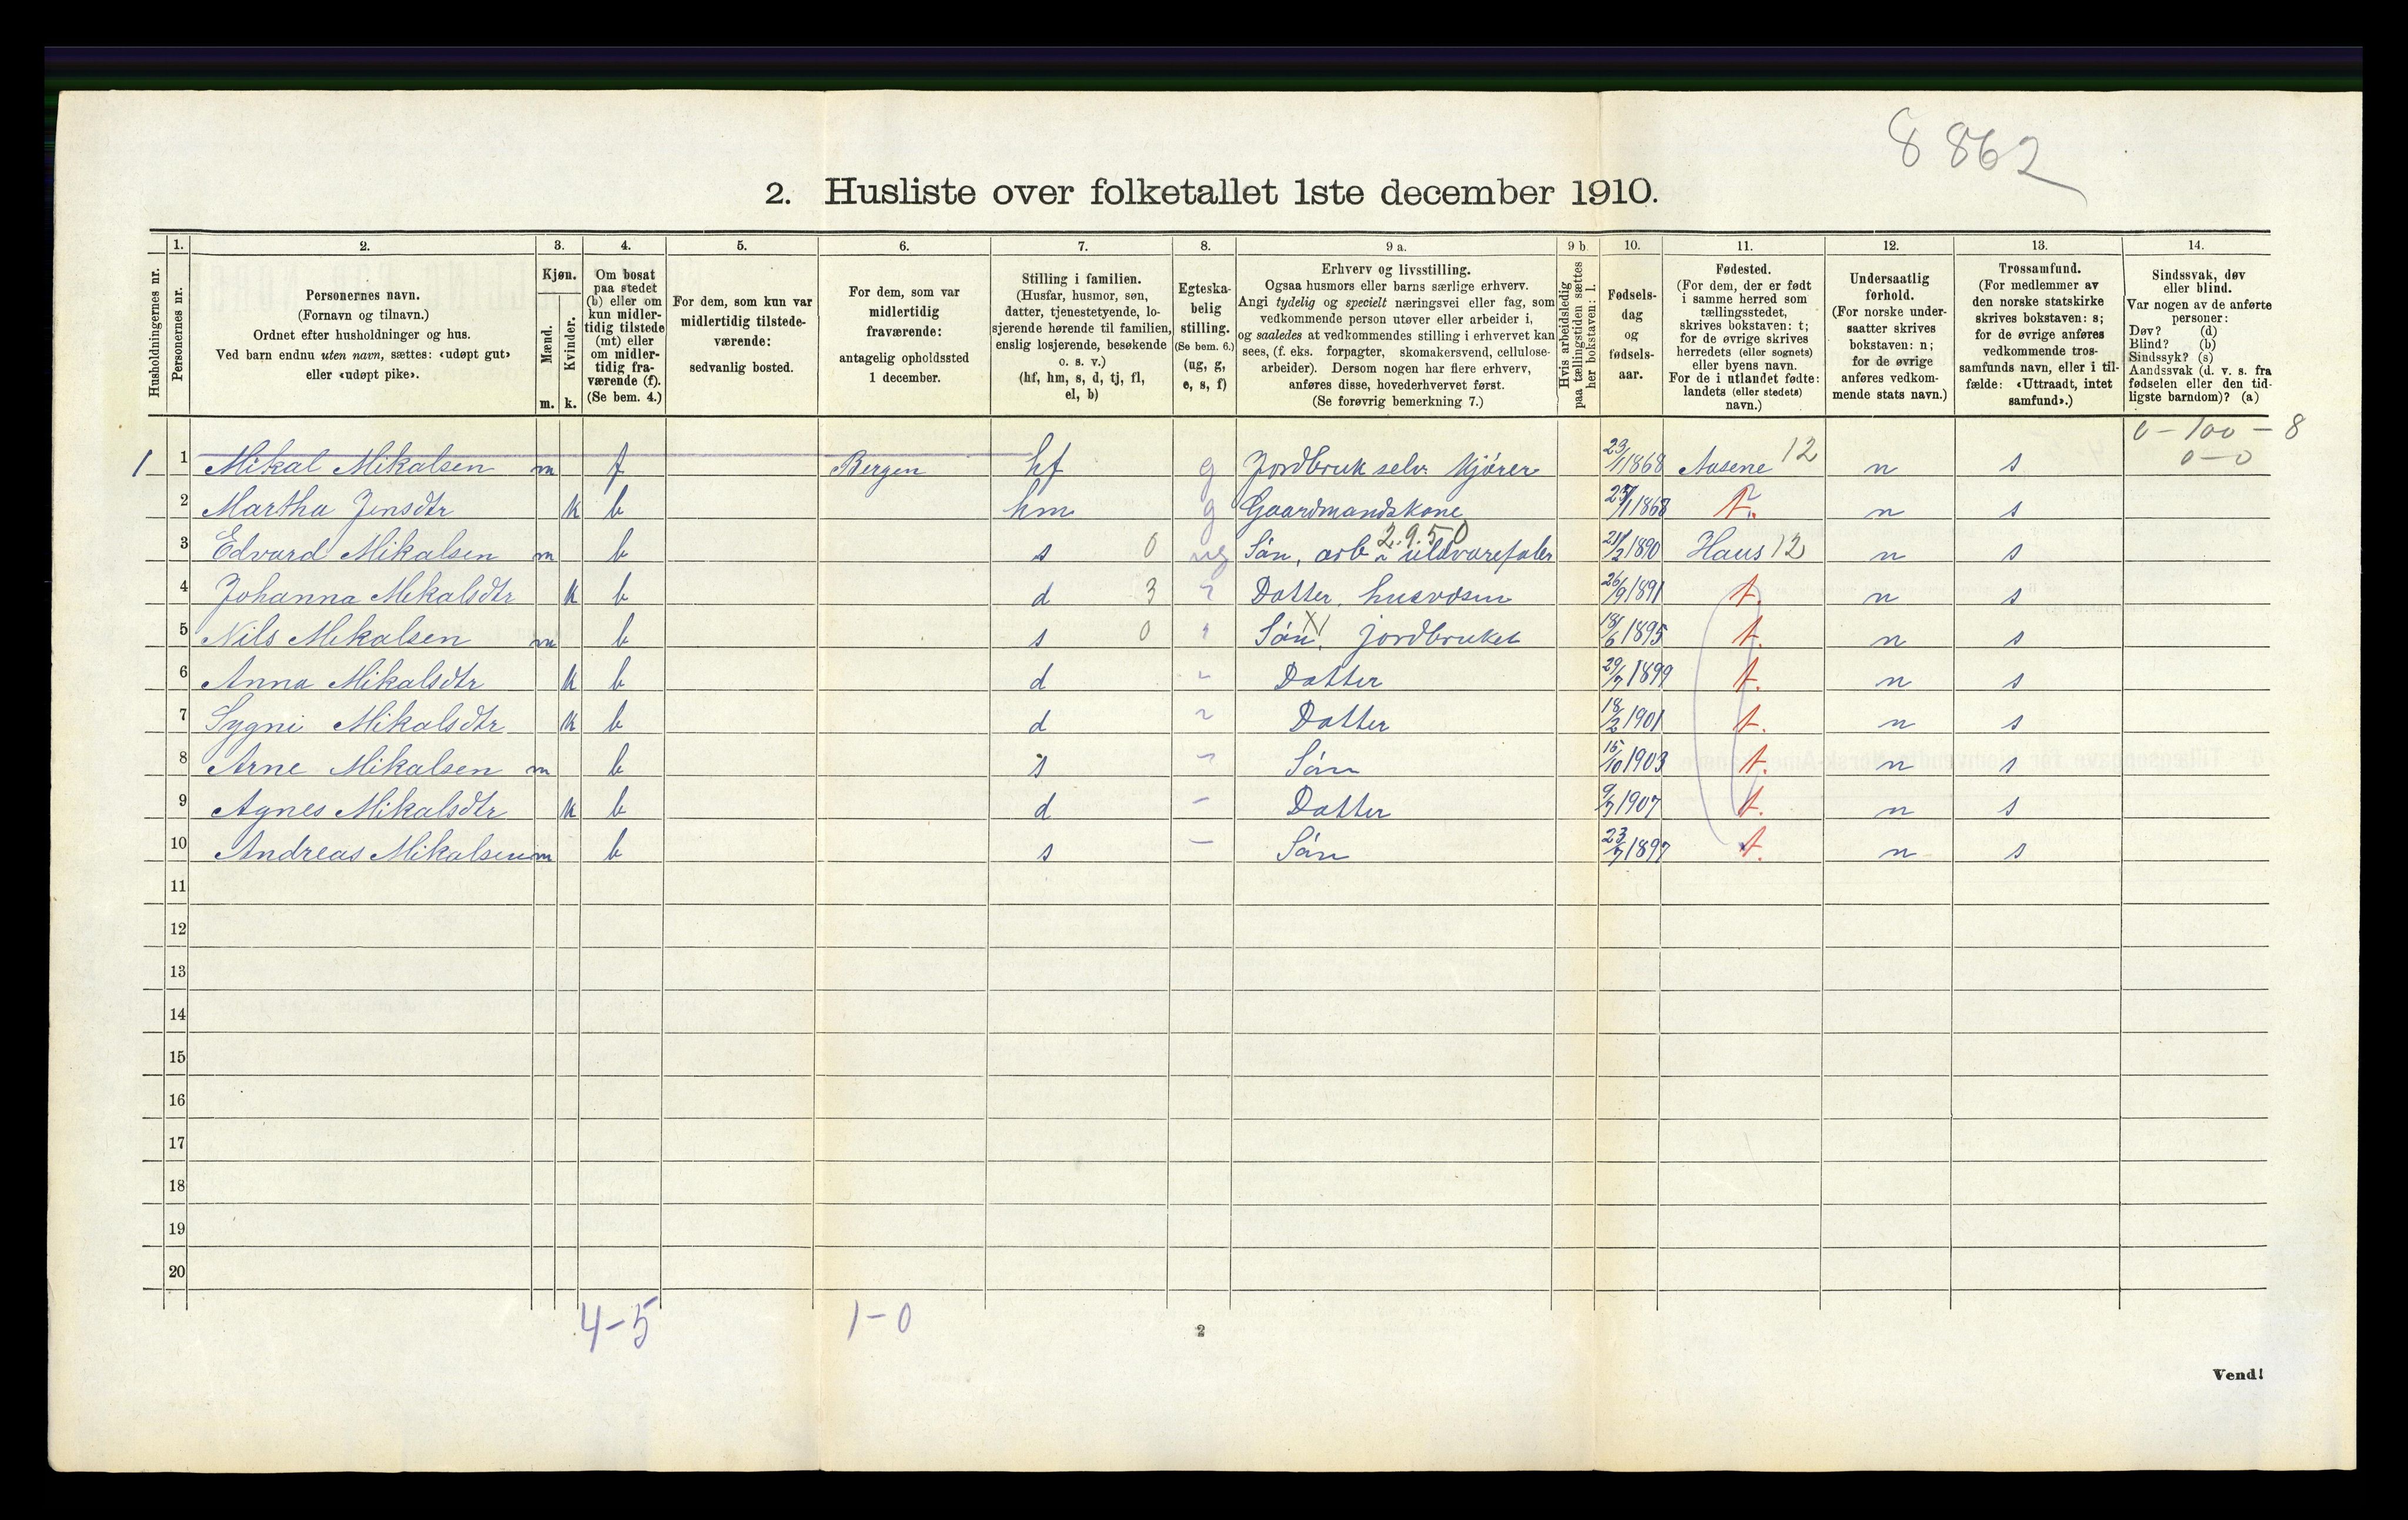 8862
2. Husliste over folketallet 1ste december 1910.
Husholdningernes nr.
1.
Personernes nr.
2.
Personernes navn.
(Fornavn og tilnavn.)
Ordnet efter husholdninger og hus.
Ved barn endnu uten navn, sættes: «udøpt gut»
eller «udøpt pike».
3.
Kjøn.
Mænd.
Kvinder.
m. k.
4.
Om bosat
paa stedet
(b) eller om
kun midler-
tidig tilstede
(mt) eller
om midler-
tidig fra-
værende (f).
(Se bem. 4.)
5.
For dem, som kun var
midlertidig tilstede-
værende:
sedvanlig bosted.
6.
For dem, som var
midlertidig
fraværende:
antagelig opholdssted
1 december.
7.
Stilling i familien.
(Husfar, husmor, søn,
datter, tjenestetyende, lo-
sjerende hørende til familien,
enslig losjerende, besøkende
o. s. v.)
(hf, hm, s, d, tj, fl,
el, b)
8.
Egteska-
belig
stilling.
(Se bem. 6.)
(ug, g,
e, s, f)
9 a.
Erhverv og livsstilling.
Ogsaa husmors eller barns særlige erhverv.
Angi tydelig og specielt næringsvei eller fag, som
vedkommende person utøver eller arbeider i,
og saaledes at vedkommendes stilling i erhvervet kan
sees, (f. eks. forpagter, skomakersvend, cellulose-
arbeider). Dersom nogen har flere erhverv,
anføres disse, hovederhvervet først.
(Se forøvrig bemerkning 7.)
9 b.
Hvis arbeidsledig
paa tællingstiden sættes
her bokstaven: l.
10.
Fødsels-
dag
og
fødsels-
aar.
11.
Fødested.
(For dem, der er født
i samme herred som
tællingsstedet,
skrives bokstaven: t;
for de øvrige skrives
herredets (eller sognets)
eller byens navn.
For de i utlandet fødte:
landets (eller stedets)
navn.)
12.
Undersaatlig
forhold.
(For norske under-
saatter skrives
bokstaven: n;
for de øvrige
anføres vedkom-
mende stats navn.)
13.
Trossamfund.
(For medlemmer av
den norske statskirke
skrives bokstaven: s;
for de øvrige anføres
vedkommende tros-
samfunds navn, eller i til-
fælde: «Uttraadt, intet
samfund».)
14.
Sindssvak, døv
eller blind.
Var nogen av de anførte
personer:
Døv? (d)
Blind? (b)
Sindssyk? (s)
Aandssvak (d. v. s. fra
fødselen eller den tid-
ligste barndom)? (a)
0 - 100 - 8
0 - 0
1 1 Mikal Mikalsen m f Bergen hf g Jordbruk selv. Kjører 23/1 1868 Aasene 12 n s
2 Martha Jensdtr k b hm g Gaardmandskone 1868 t. n s
2.9.50
3 Edvard Mikalsen m b s 0 ug Søn, arb. uldvarefabr 21/2 1890 Haus 12 n s
4 Johanna Mikalsdtr k b d 3 " Datter, husvæsen 26/9 1891 t. n s
5 Nils Mikalsen m b s 0 " Søn, jordbruket 18/6 1895 t. n s
6 Anna Mikalsdtr k b d " Datter 29/7 1899 t. n s
7 Sygni Mikalsdtr k b d " Datter 18/2 1901 t. n s
8 Arne Mikalsen m b s " Søn 15/10 1903 t. n s
9 Agnes Mikalsdtr k b d - Datter 9/7 1907 t. n s
10 Andreas Mikalsen m b s - Søn 23/7 1897 t. n s
11
12
13
14
15
16
17
18
19
20
4-5 1-0
2
Vend!